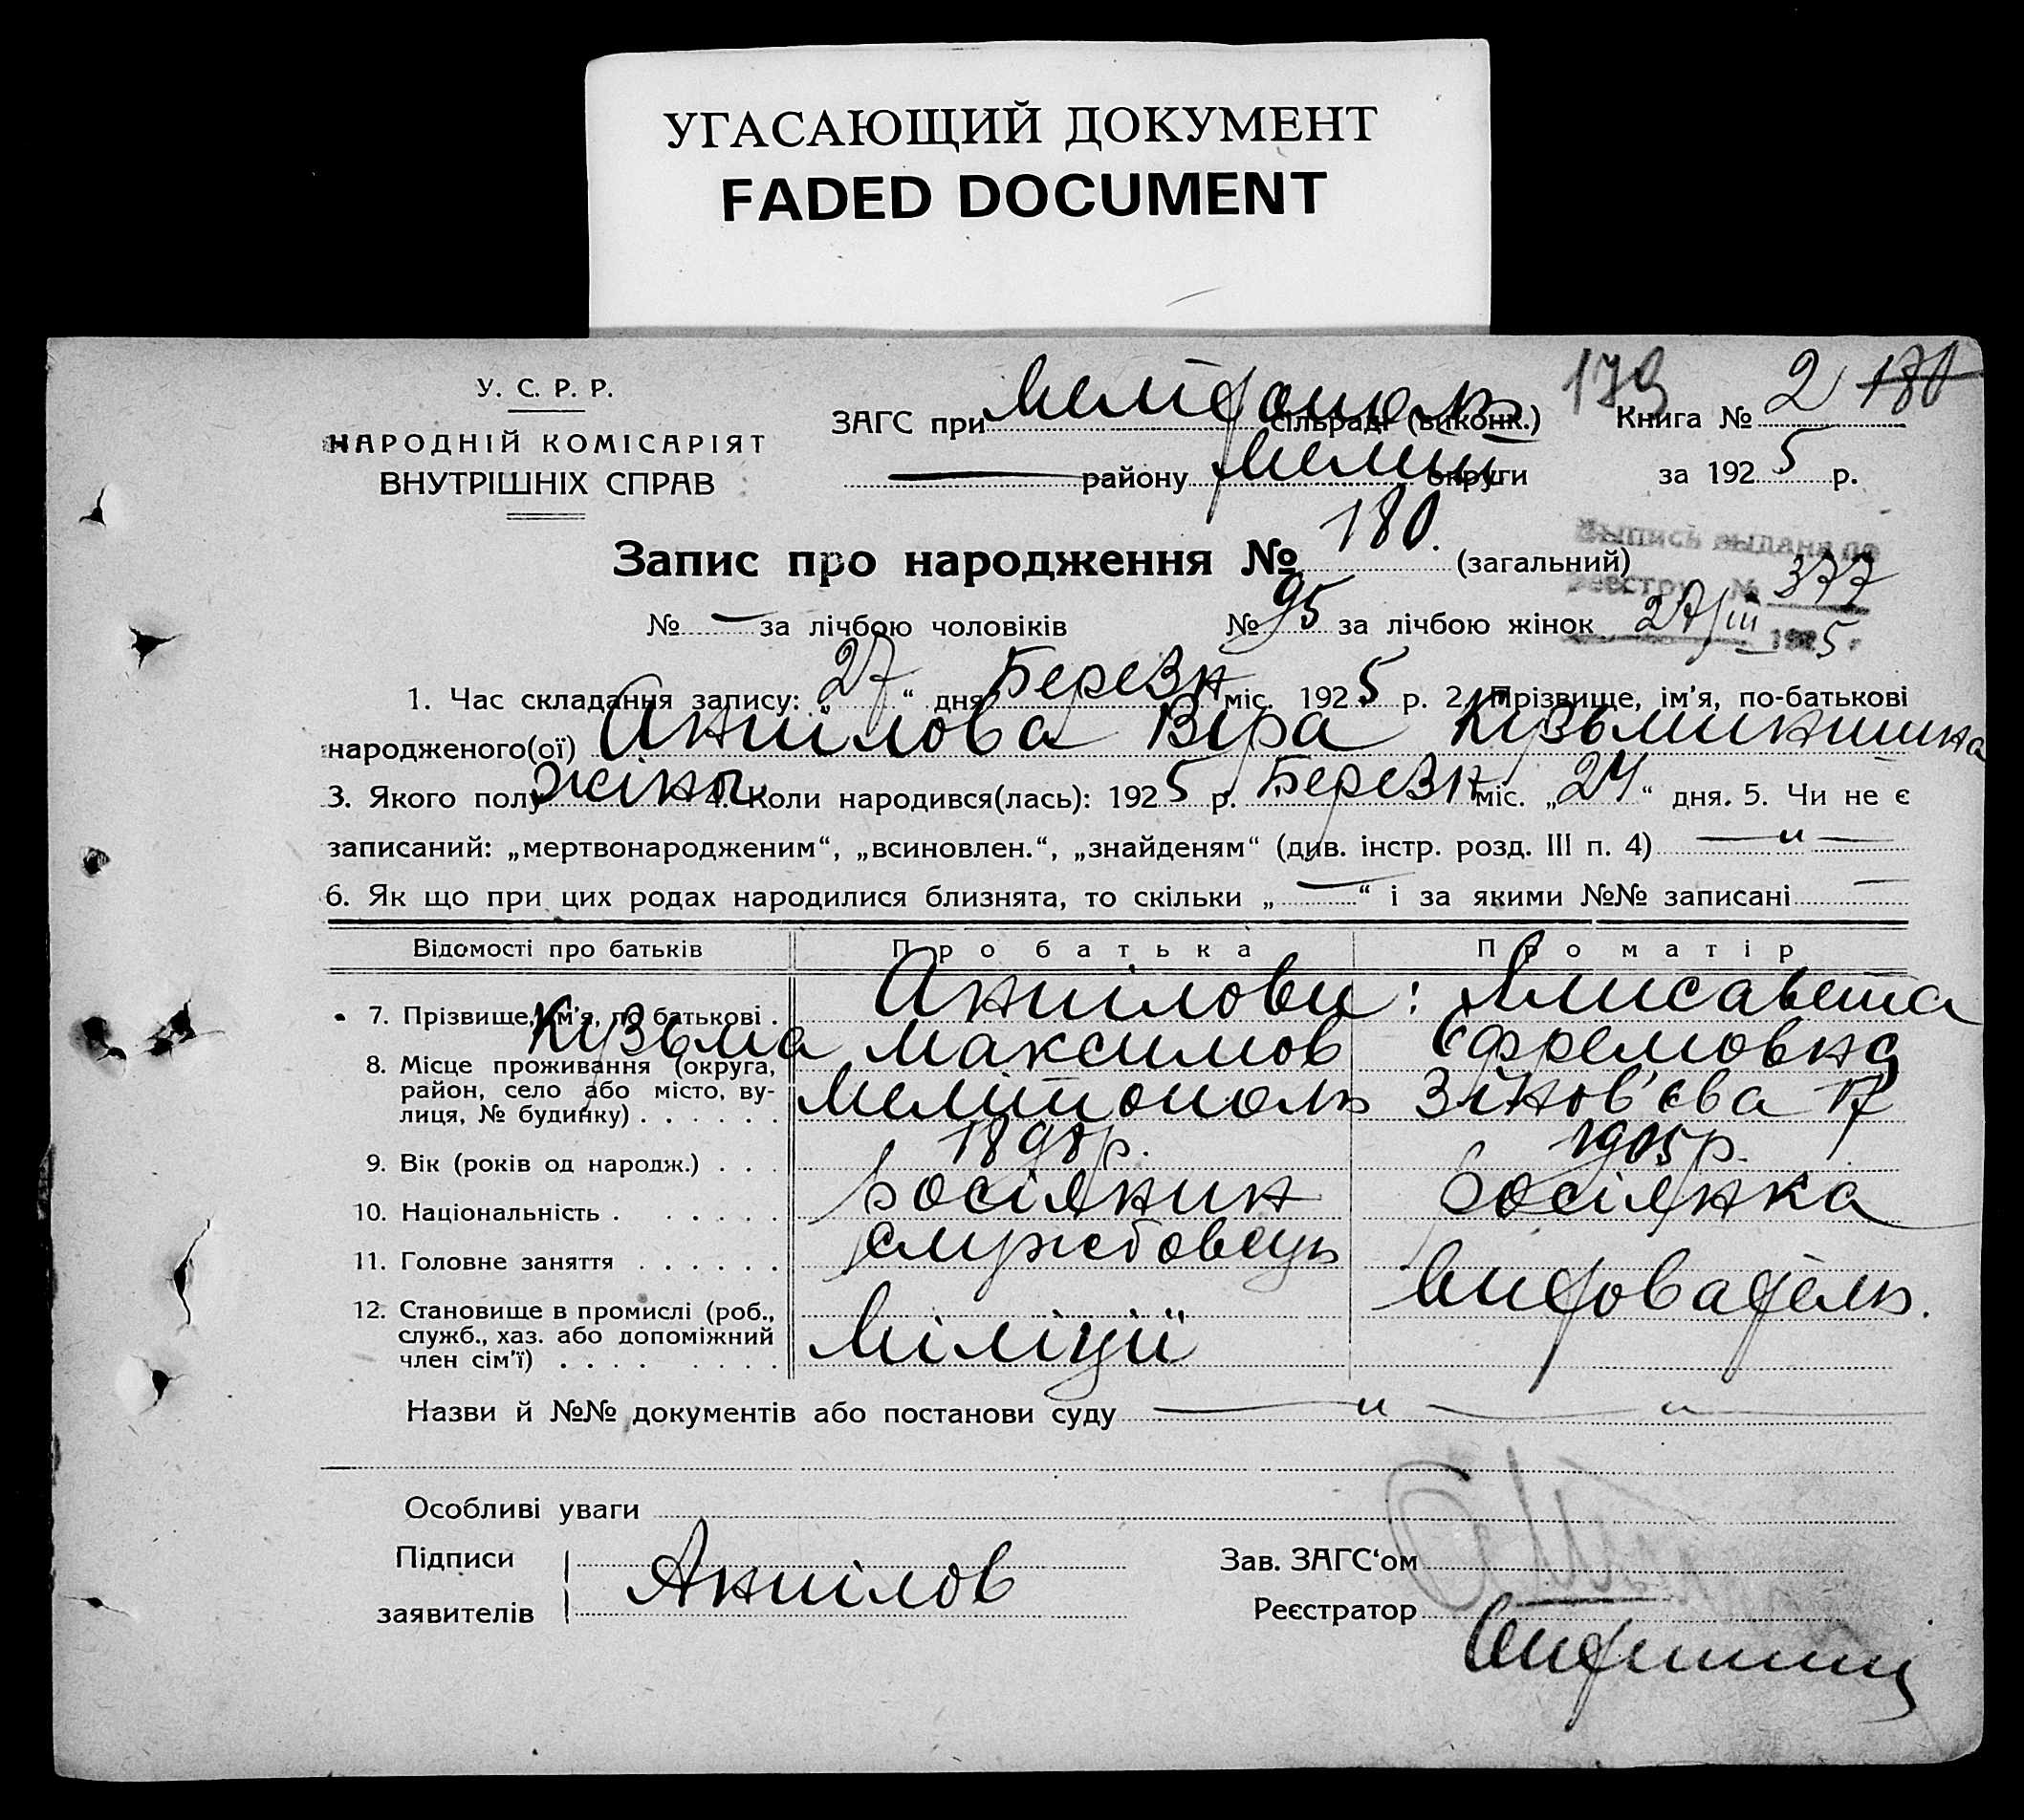 УГАСАЮЩИЙ ДОКУМЕНТ
FADED DOCUMENT
У. С. Р. Р.
НАРОДНІЙ КОМІСАРІЯТ
ВНУТРІШНІХ СПРАВ
ЗАГС при Мелітополь сільраді (виконк.)
району Меліт округи
179
Книга № 2 180
за 1925 р.
Запис про народження № 180. (загальний)
Выпись выдана по
реестру № 377
27/III 1925 г
№ — за лічбою чоловіків № 95 за лічбою жінок
1. Час складання запису: „27“ дня Березн міс. 1925 р. 2. Прізвище, ім'я, по-батькові
народженого(ої) Анпілова Віра Кузьминишна
3. Якого полу жіноч. 4. Коли народився(лась): 1925 р. Березн міс. „24“ дня. 5. Чи не є
записаний: „мертвонародженим“, „всиновлен.“, „знайденям“ (див. інстр. розд. III п. 4) — „ —
6. Як що при цих родах народилися близнята, то скільки „—“ і за якими №№ записані —
Відомості про батьків Про батька Про матір
7. Прізвище, ім'я, по батькові . Анпілови: Єлисавета
Кузьма Максимов Єфремовна
8. Місце проживання (округа,
район, село або місто, ву-
лиця, № будинку) . . . . . . Мелітополь Зінов'єва 17
9. Вік (років од народж.) . . . 1898 р. 1905 р.
10. Національність . . . . . . Росіянин Росіянка
11. Головне заняття . . . . . . службовець
12. Становище в промислі (роб.,
служб., хаз. або допоміжний
член сім'ї) . . . . . . . . Міліції
Назви й №№ документів або постанови суду — „ — „ —
Особливі уваги
Підписи
заявителів Анпілов
Зав. ЗАГС‘ом
Реєстратор